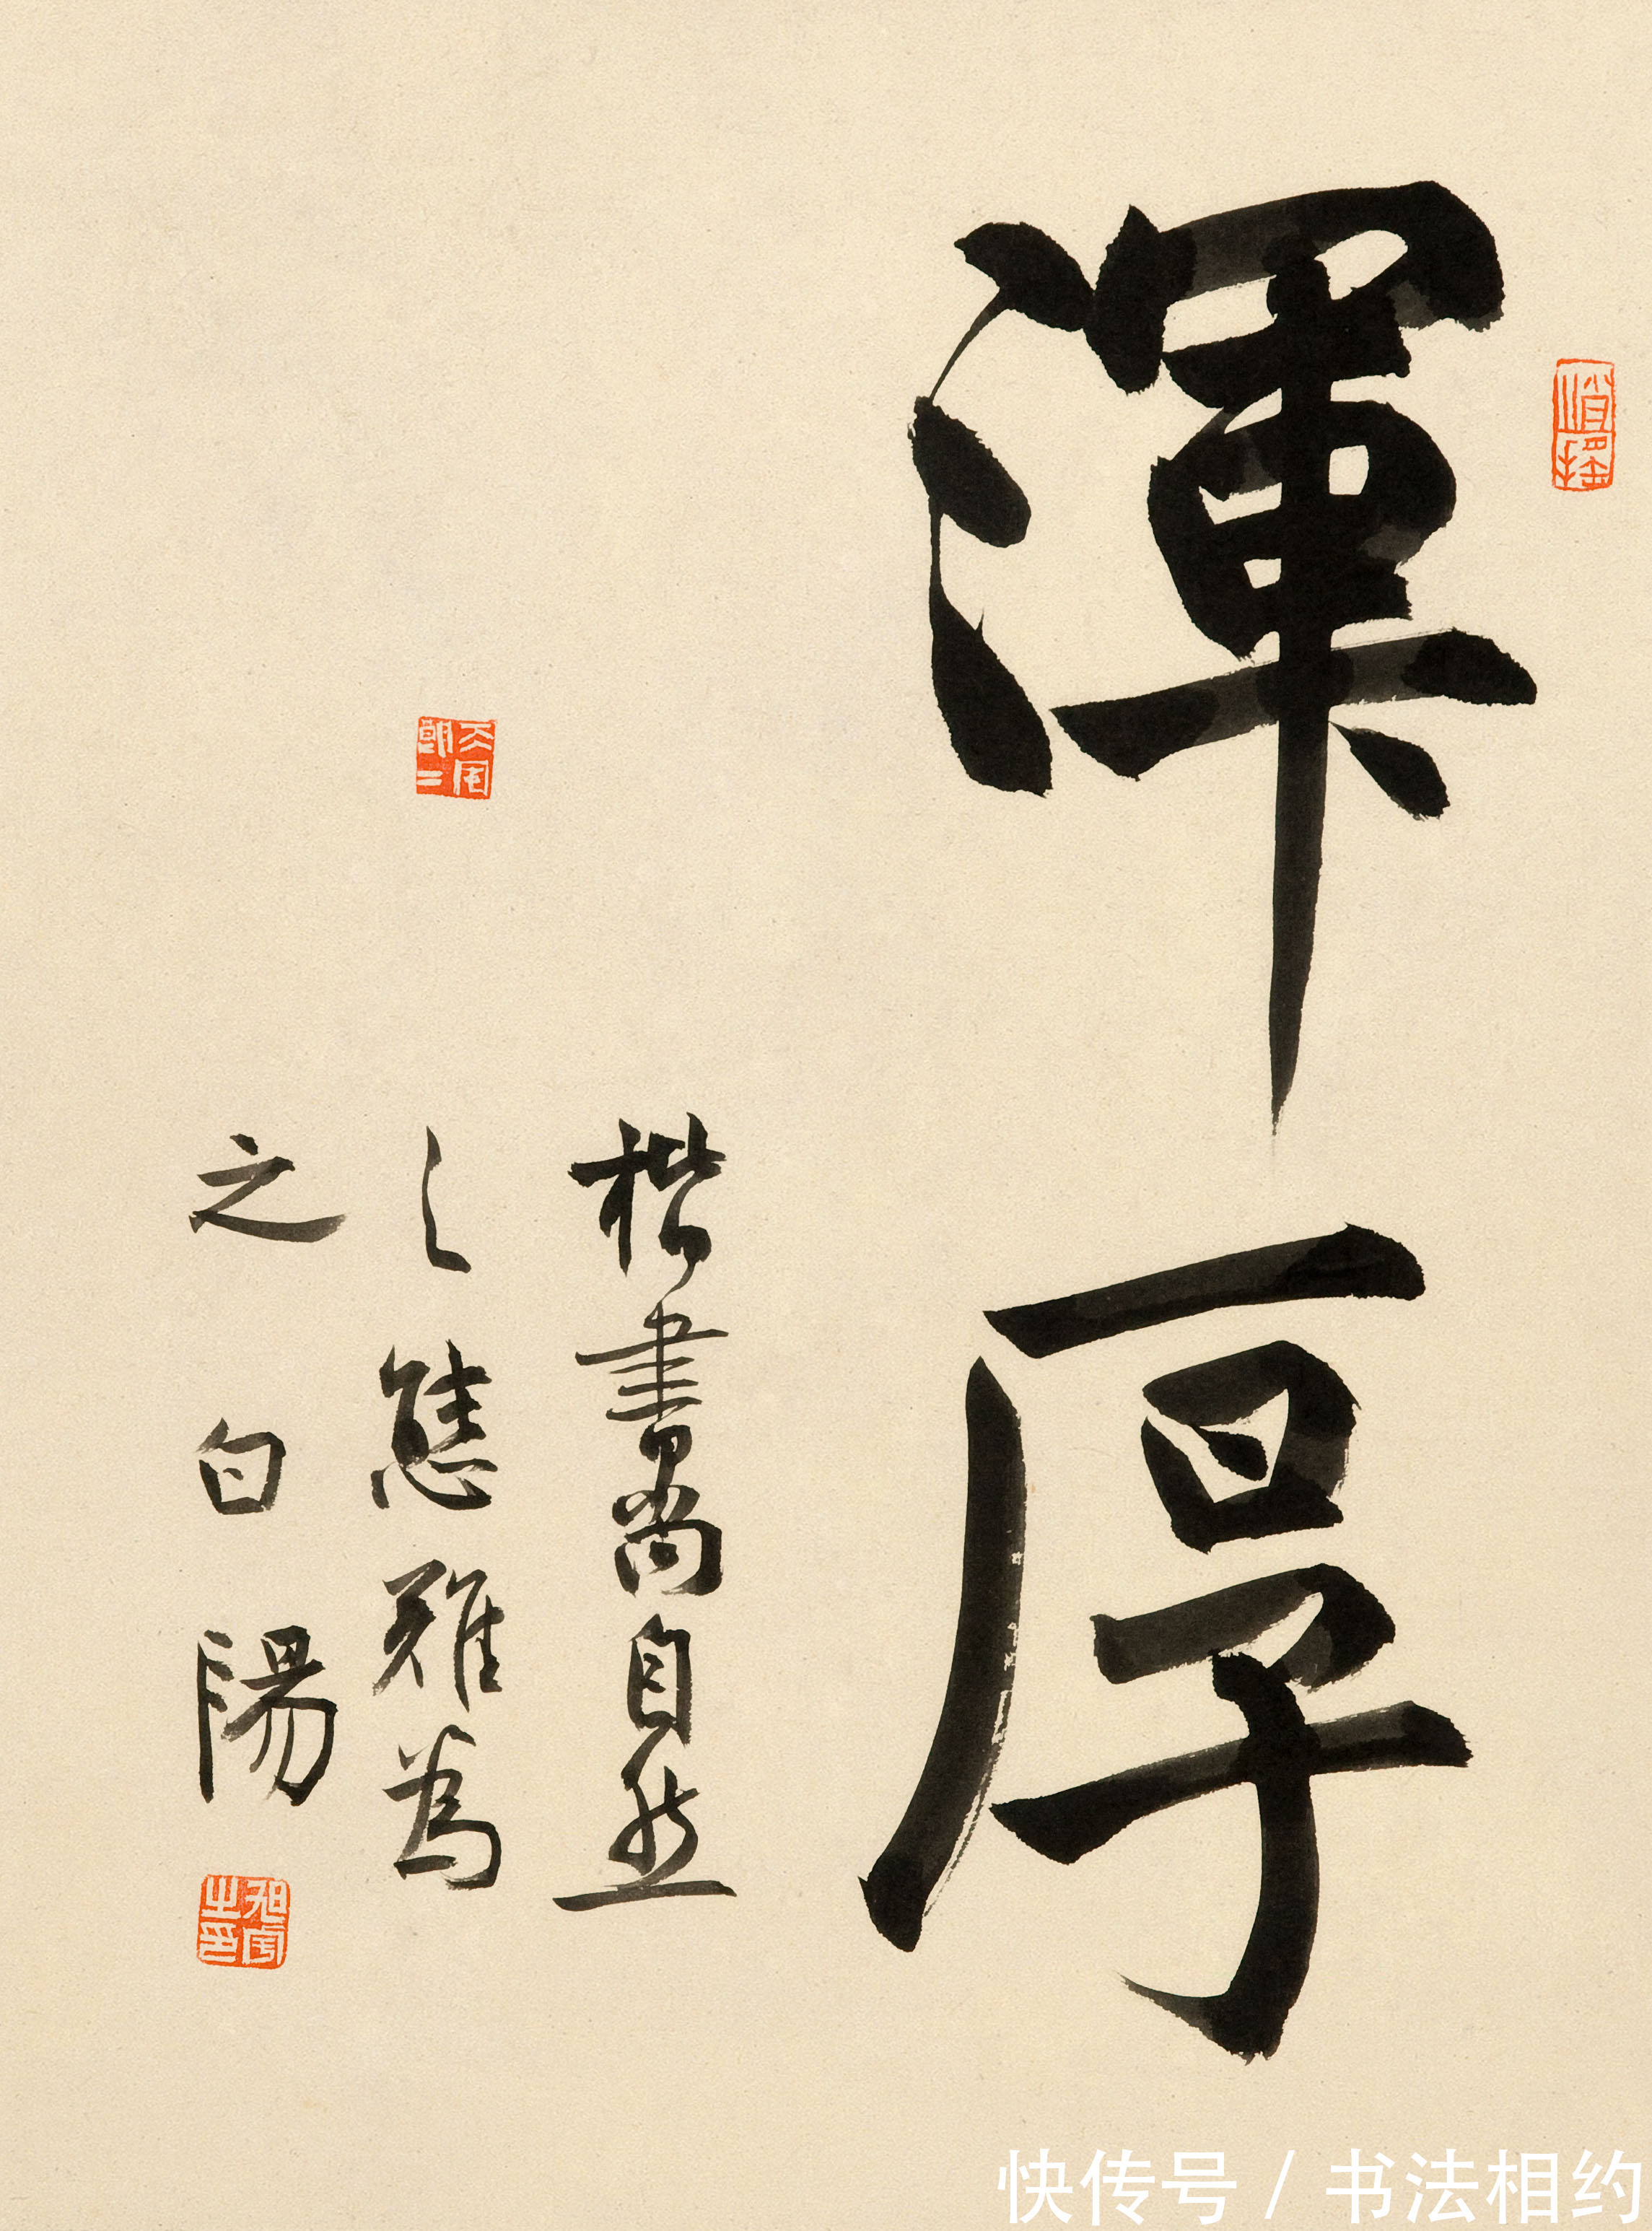 渾厚
楷書尚自然
之態難為
之 白陽
之印
快传号 / 书法相约